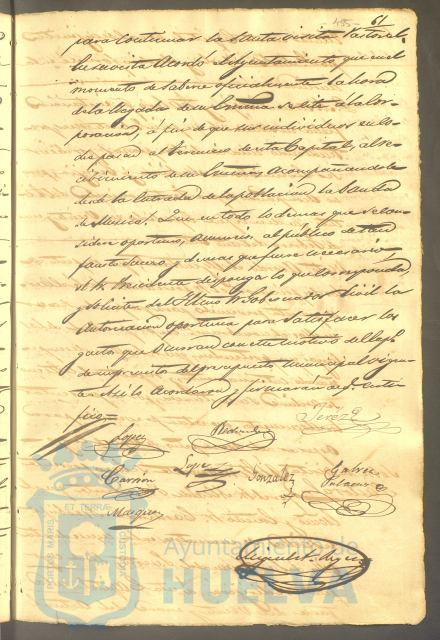 61
para continuar la Santa visita Pastoral.
En su vista acordó el Ayuntamiento que en el
momento de saberse oficialmente la hora
de la llegada de su Emma se cite a la Cor-
poracion, á fin de que sus individuos en Co-
misión pasen al término de esta Capital, al re-
cibimiento de su Emma acompañandole
desde la entrada de la poblacion la Banda
de Musica. Que en todo lo demas que se con-
sidere oportuno, anuncio al público de tan
fausto suceso, y demas que fuere necesario,
el Sr. Presidente disponga lo que corresponda,
y solicite del Iltmo Sr. Gobernador Civil la
autorizacion oportuna para satisfacer los
gastos que ocurran con este motivo del Capº
de imprevistos del presupuesto municipal vigen-
te. Asi lo acordaron y firmarán de que certi-
fico=
Jerez
Lopez
Redondo
Carrión
Lope
Gonzalez
Galvez
Marquez
PORTUS MARIS ET TERRÆ CUSTODIA
Ayuntamiento de
HUELVA